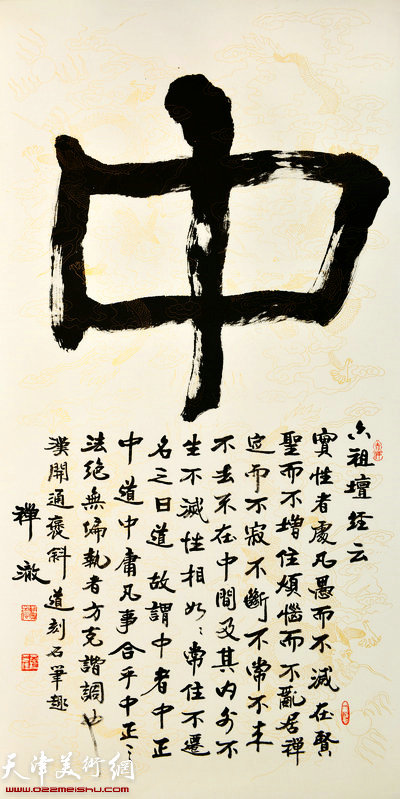 中
六祖壇經云
實性者處凡愚而不減在賢
聖而不增住煩惱而不亂居禪
定而不寂不斷不常不来
不去不在中間及其内外不
生不滅性相如〻常住不遷
名之曰道故謂中者中正
中道中庸凡事合乎中正〻
法絶無偏執者方克諧調也
漢開通褒斜道刻石筆趣
禅澈
天津美術網
www.022meishu.com